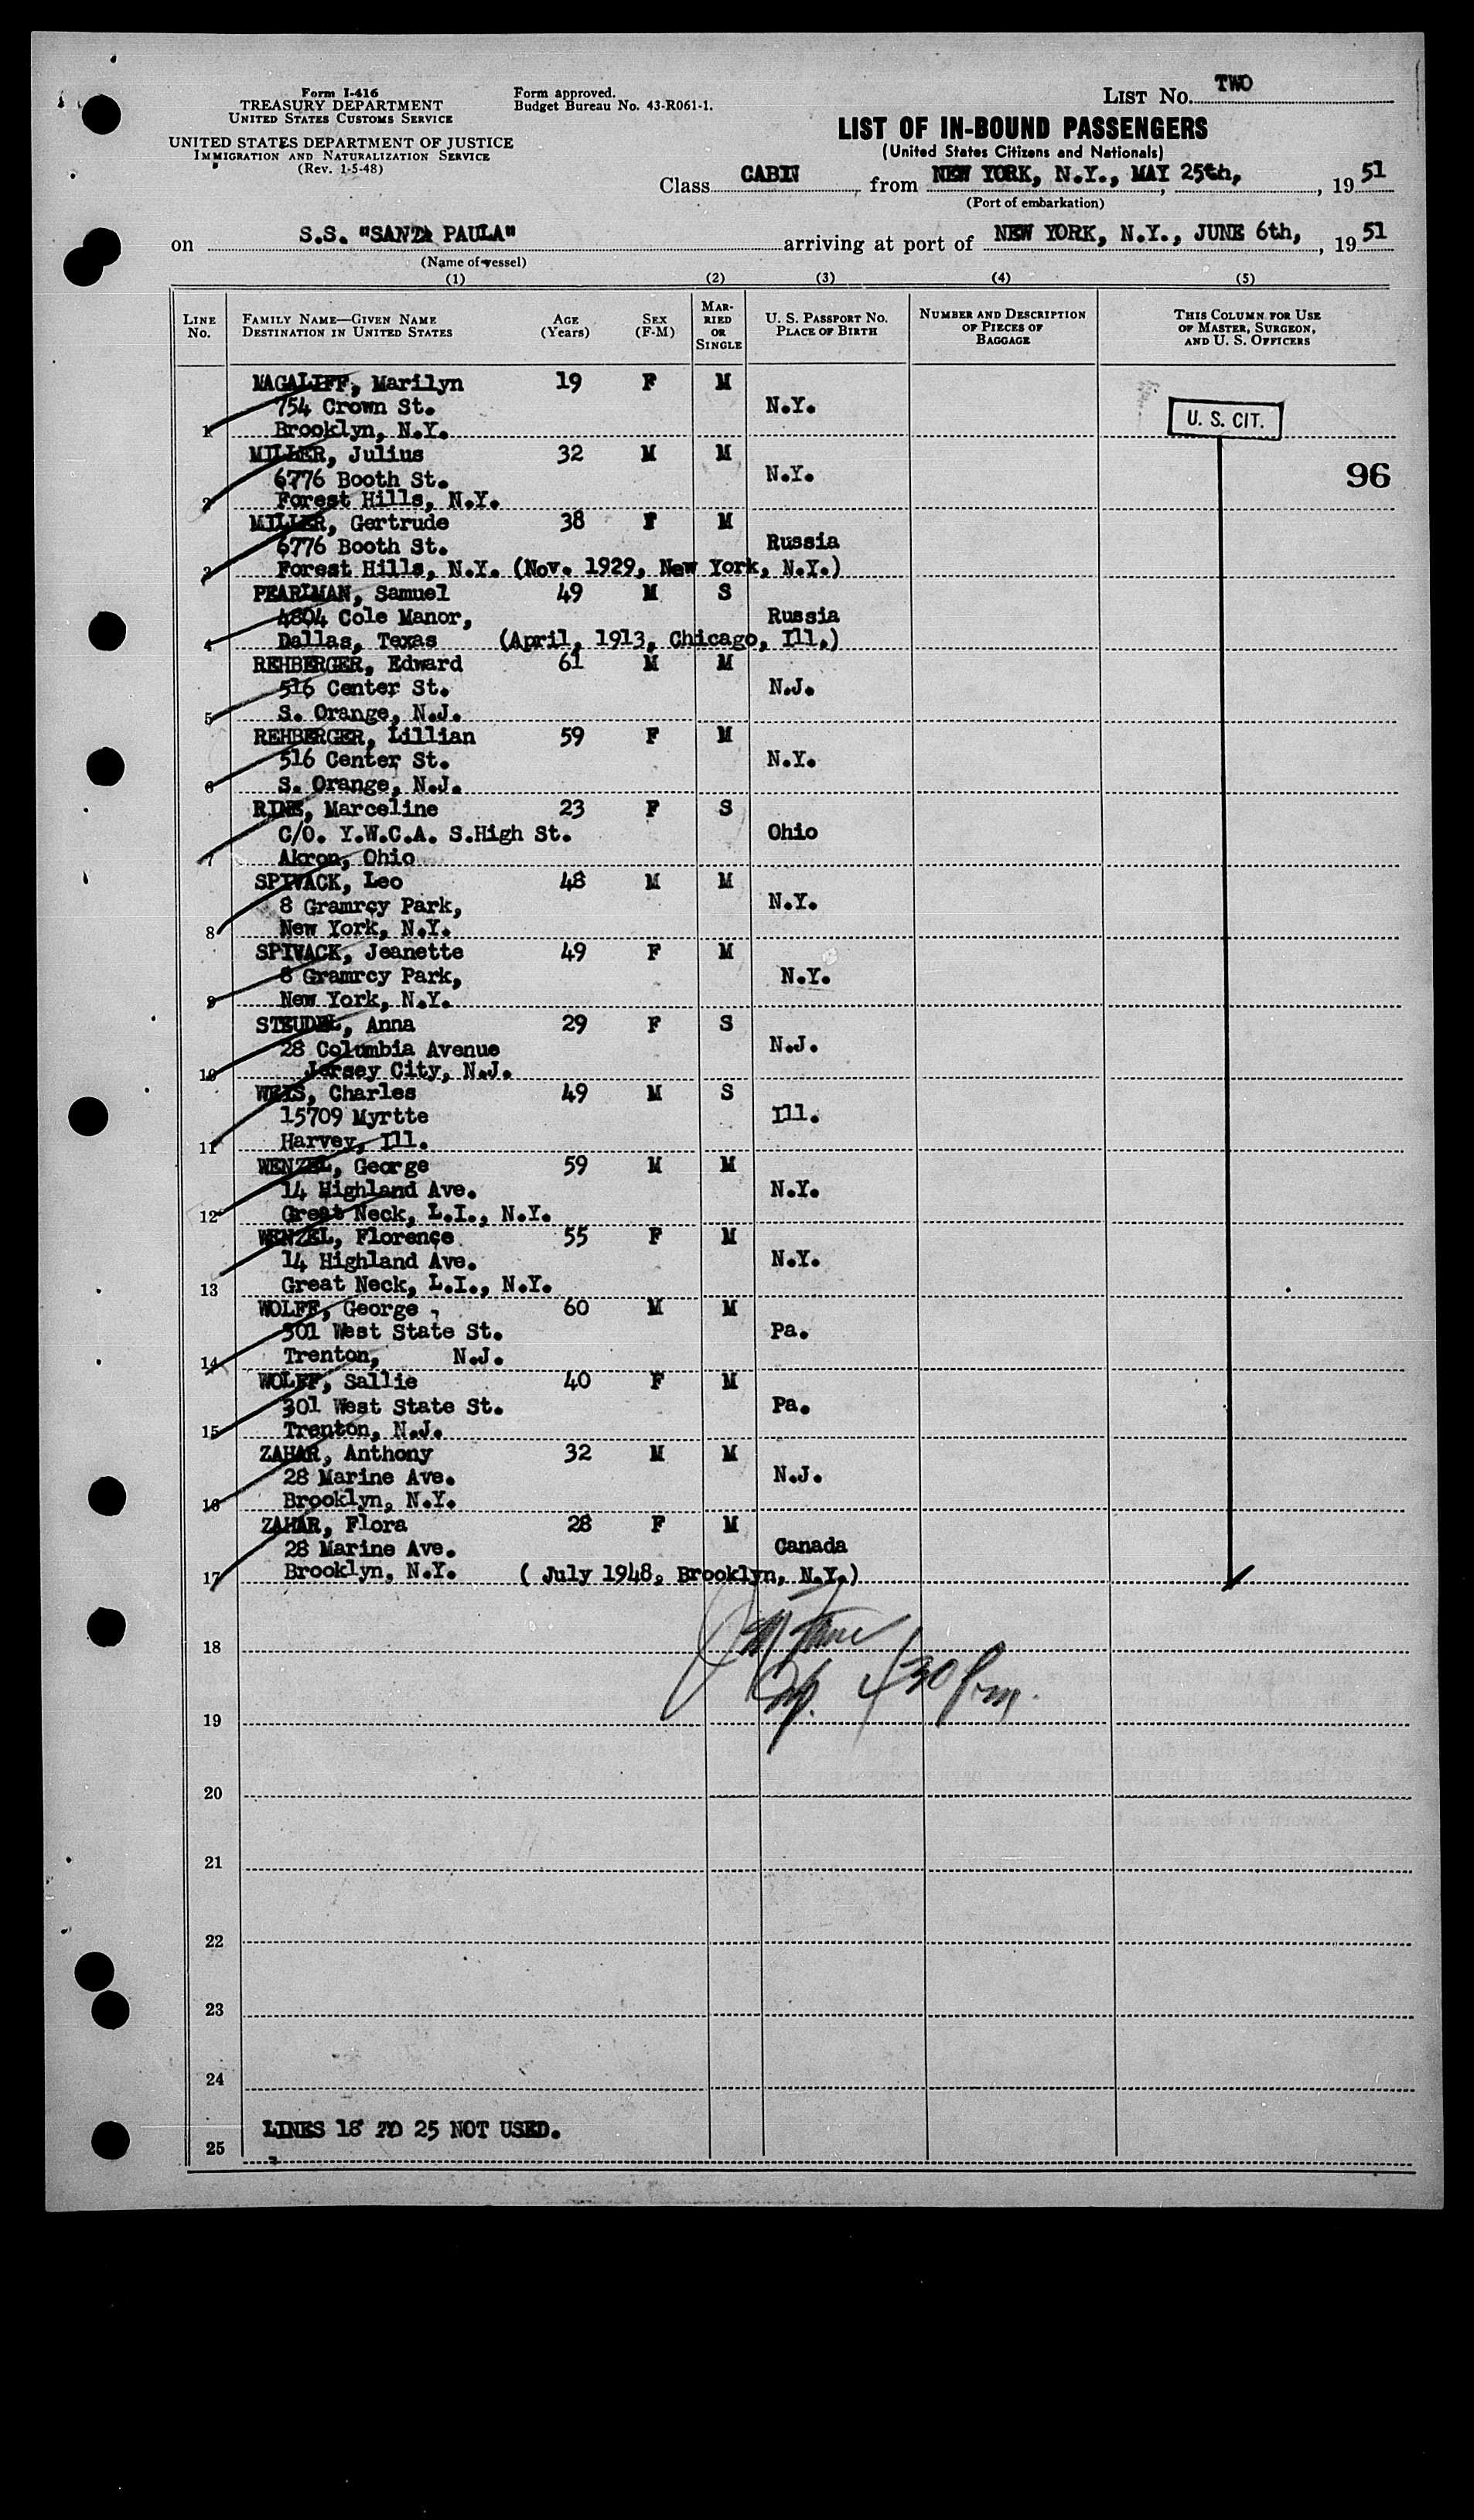 Form I-416
TREASURY DEPARTMENT
UNITED STATES CUSTOMS SERVICE
UNITED STATES DEPARTMENT OF JUSTICE
IMMIGRATION AND NATURALIZATION SERVICE
(Rev. 1-5-48)
Form approved.
Budget Bureau No. 43-R061-1.
LIST No. TWO
LIST OF IN-BOUND PASSENGERS
(United States Citizens and Nationals)
Class CABIN, from NEW YORK, N.Y., MAY 25th, , 19 51
(Port of embarkation)
on S.S. "SANTA PAULA" arriving at port of NEW YORK, N.Y., JUNE 6th, , 19 51
(Name of vessel)
(1) (2) (3) (4) (5)
LINE No. FAMILY NAME—GIVEN NAME DESTINATION IN UNITED STATES AGE (Years) SEX (F-M) MARRIED OR SINGLE U. S. PASSPORT No. PLACE OF BIRTH NUMBER AND DESCRIPTION OF PIECES OF BAGGAGE THIS COLUMN FOR USE OF MASTER, SURGEON, AND U. S. OFFICERS
MAGALIFF, Marilyn 19 F M
754 Crown St. N.Y.
1 Brooklyn, N.Y.
U. S. CIT.
MILLER, Julius 32 M M
6776 Booth St. N.Y. 96
2 Forest Hills, N.Y.
MILLER, Gertrude 38 F M
6776 Booth St. Russia
3 Forest Hills, N.Y. (Nov. 1929, New York, N.Y.)
PEARLMAN, Samuel 49 M S
4804 Cole Manor, Russia
4 Dallas, Texas (April, 1913, Chicago, Ill.)
REHBERGER, Edward 61 M M
516 Center St. N.J.
5 S. Orange, N.J.
REHBERGER, Lillian 59 F M
516 Center St. N.Y.
6 S. Orange, N.J.
RINE, Marceline 23 F S
C/O. Y.W.C.A. S.High St. Ohio
7 Akron, Ohio
SPIVACK, Leo 48 M M
8 Gramrcy Park, N.Y.
8 New York, N.Y.
SPIVACK, Jeanette 49 F M
8 Gramrcy Park, N.Y.
9 New York, N.Y.
STEUDEL, Anna 29 F S
28 Columbia Avenue N.J.
10 Jersey City, N.J.
WEIS, Charles 49 M S
15709 Myrtte Ill.
11 Harvey, Ill.
WENZEL, George 59 M M
14 Highland Ave. N.Y.
12 Great Neck, L.I., N.Y.
WENZEL, Florence 55 F M
14 Highland Ave. N.Y.
13 Great Neck, L.I., N.Y.
WOLFF, George 60 M M
301 West State St. Pa.
14 Trenton, N.J.
WOLFF, Sallie 40 F M
301 West State St. Pa.
15 Trenton, N.J.
ZAHAR, Anthony 32 M M
28 Marine Ave. N.J.
16 Brooklyn, N.Y.
ZAHAR, Flora 28 F M
28 Marine Ave. Canada
17 Brooklyn, N.Y. ( July 1948, Brooklyn, N.Y.)
18
4 30 p.m.
19
20
21
22
23
24
LINES 18 TO 25 NOT USED.
25